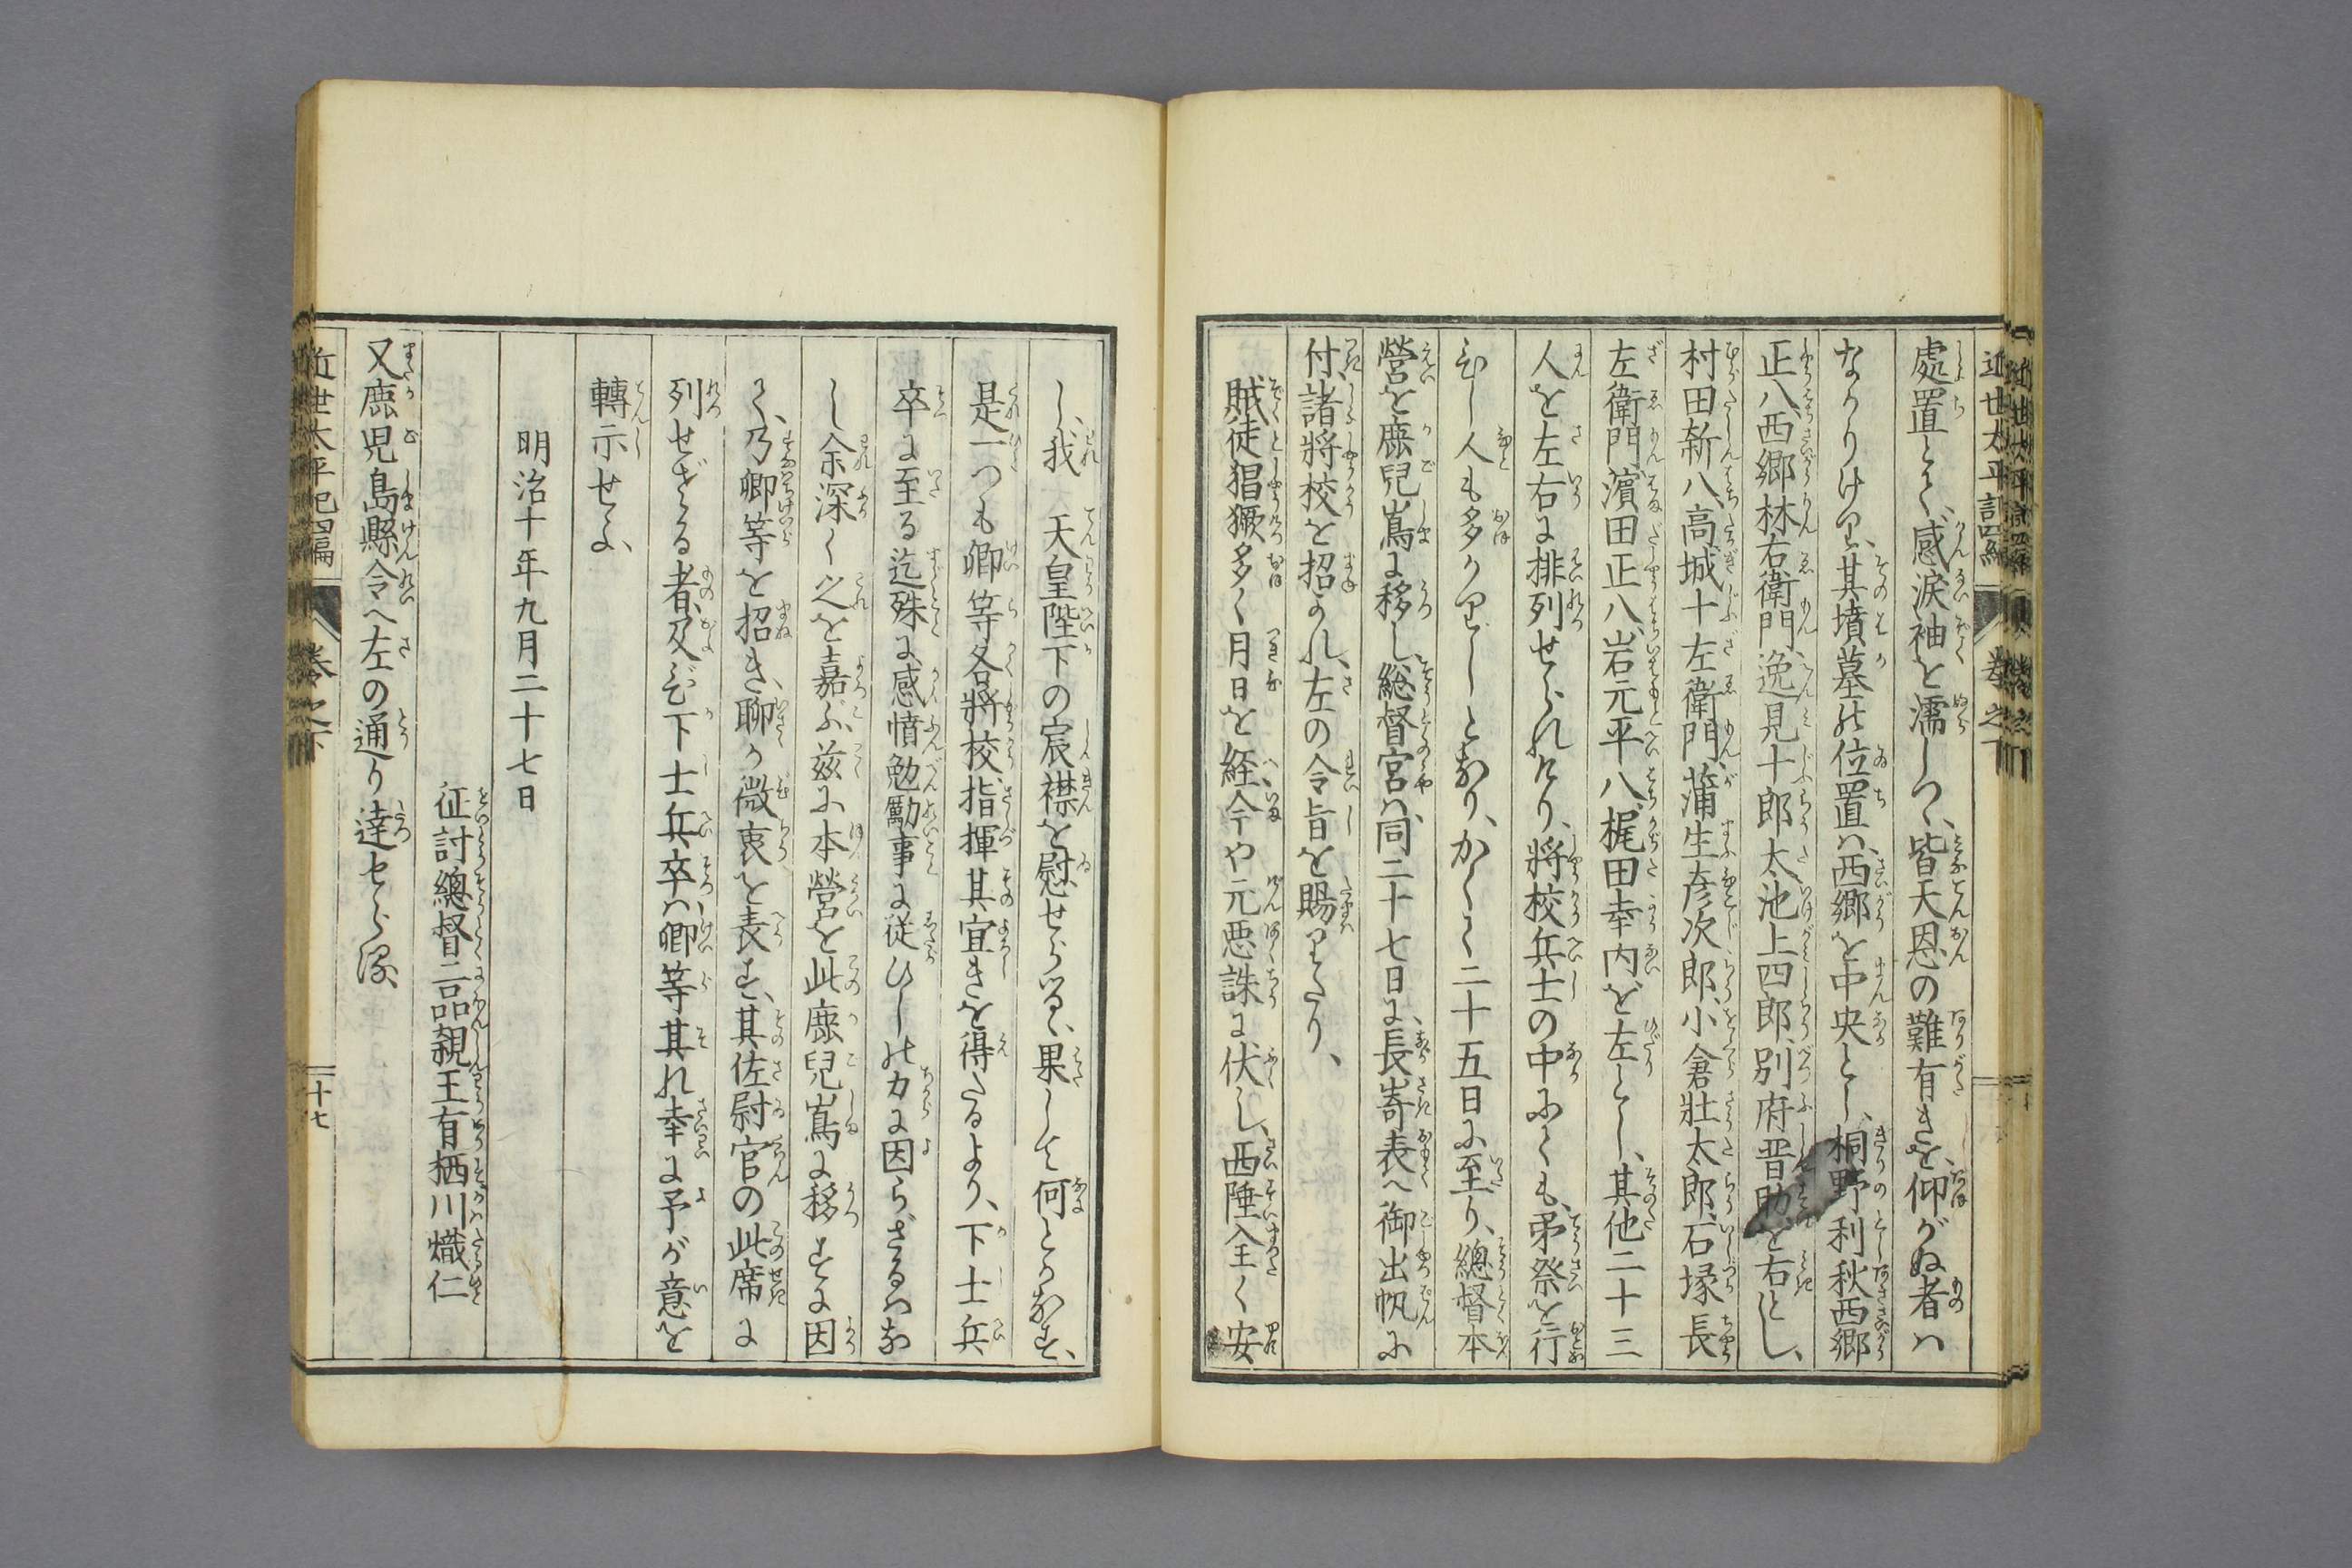 近世太平記四編 卷之下
處置とて、感涙袖を濡しつヽ、皆天恩の難有きを、仰がぬ者ハ
なかりけり、其墳墓の位置ハ、西郷を中央とし、桐野利秋西郷
正八、西郷林右衛門、逸見十郎太、池上四郎、別府晋助を右とし、
村田新八、高城十左衛門、蒲生彦次郎、小倉壯太郎、石塚長
左衛門、濵田正八、岩元平八、梶田幸内を左とし、其他二十三
人を左右に排列せられけり、將校兵士の中にても、弔祭を行
ひし人も多かりしとなり、かくて二十五日に至り、總督本
營を鹿兒嶌に移し、総督宮ハ、同二十七日に、長嵜表へ御出帆に
付、諸將校を招かれ、左の令旨を賜りたり、
賊徒猖獗多く月日を経、今や元悪誅に伏し、西陲全く安
し、我 天皇陛下の宸襟を慰せらるヽ、果して何とかなす、
是一つも卿等各將校、指揮其宜きを得たるより、下士兵
卒に至る迄、殊に感憤勉勵事に従ひしの力に因らざるハな
し、余深く之を嘉ぶ、茲に本營を此鹿兒嶌に移すに因
て、乃卿等を招き、聊か微衷を表す、其佐尉官の此席に
列せざる者、及び下士兵卒ハ、卿等其れ幸に予が意を
轉示せよ、
明治十年九月二十七日
征討總督二品親王有栖川熾仁
又鹿児島縣令へ左の通り達せらる、
近世太平記四編 卷之下 十七